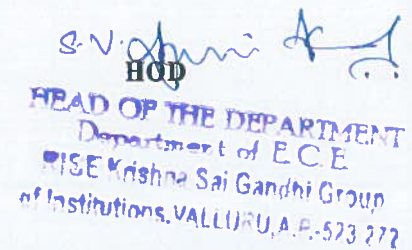 S.V.
HOD
HEAD OF THE DEPARTMENT
Department of E C E
RISE Krishna Sai Gandhi Group
of Institutions, VALLURU, A.P.-523 272